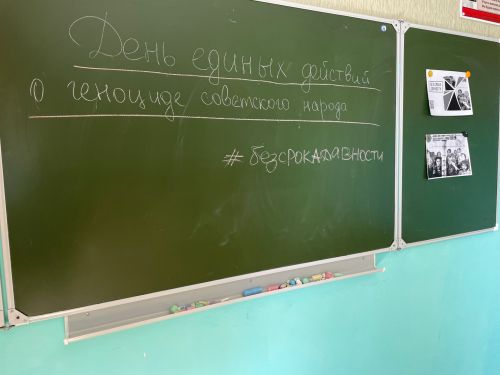 День единых действий
о геноциде советского народа
#безсрокадавности